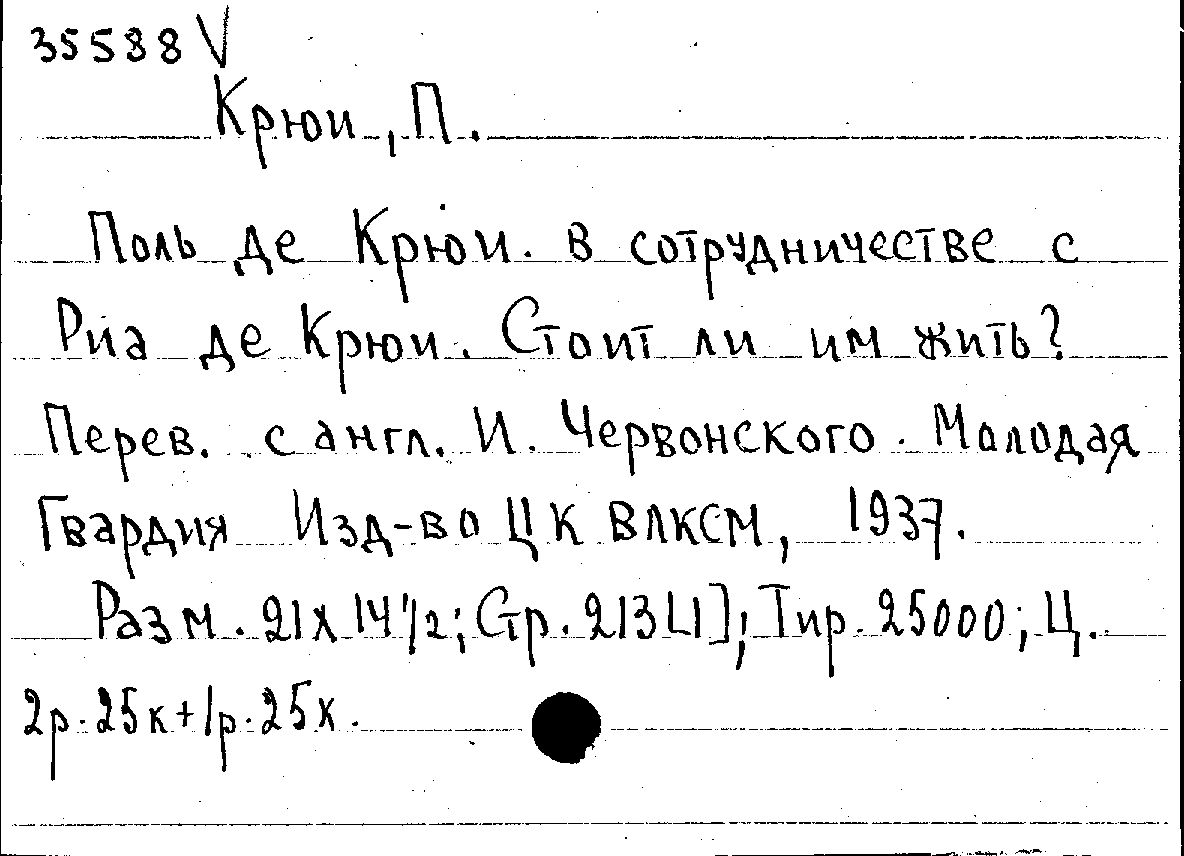 35588 V
Крюи, П.
Поль де Крюи. В сотрудничестве с
Риа де Крюи. Стоит ли им жить?
Перев. с англ. И. Червонского. Молодая
Гвардия Изд-во ЦК ВЛКСМ, 1937.
Разм. 21х14 1/2; Стр. 213[1]; Тир. 25000; Ц.
2р.25к+1р.25к.